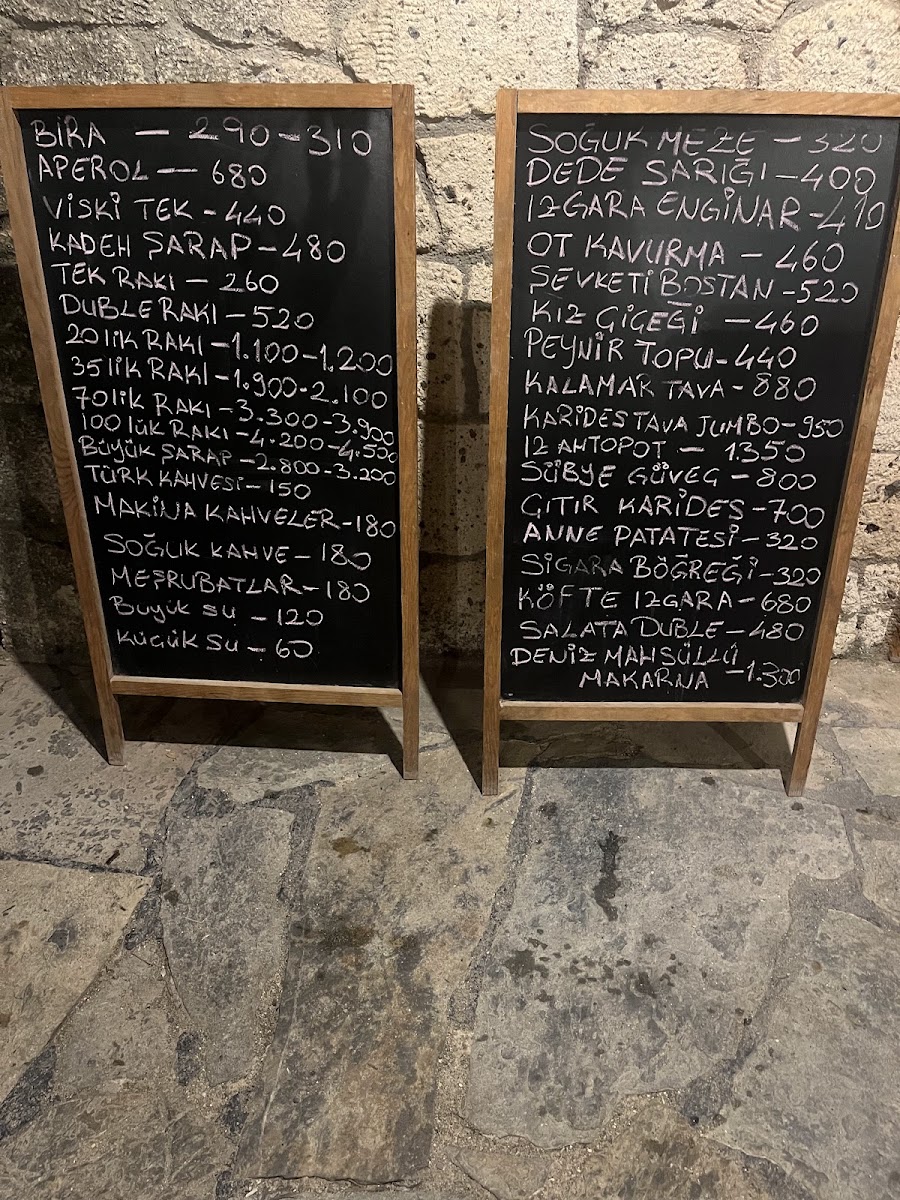 BİRA — 290-310
APEROL — 680
VİSKİ TEK - 440
KADEH ŞARAP - 480
TEK RAKI — 260
DUBLE RAKI — 520
20 lik RAKI - 1.100-1.200
35 lik RAKI - 1.900-2.100
70 lik RAKI - 3.300-3.900
100 lük RAKI - 4.200-4.500
Büyük ŞARAP - 2.800-3.200
TÜRK KAHVESİ - 150
MAKİNA KAHVELER - 180
SOĞUK KAHVE - 180
MEŞRUBATLAR - 180
Büyük su - 120
Küçük su - 60
SOĞUK MEZE - 320
DEDE SARIĞI - 400
IZGARA ENGİNAR - 410
OT KAVURMA - 460
ŞEVKETİ BOSTAN - 520
KIZ ÇİÇEĞİ - 460
PEYNİR TOPU - 440
KALAMAR TAVA - 880
KARİDES TAVA JUMBO - 950
IZ AHTOPOT - 1350
SÜBYE GÜVEÇ - 800
ÇITIR KARİDES - 700
ANNE PATATESİ - 320
SİGARA BÖĞREĞİ - 320
KÖFTE IZGARA - 680
SALATA DUBLE - 480
DENİZ MAHSÜLLÜ
MAKARNA - 1.300